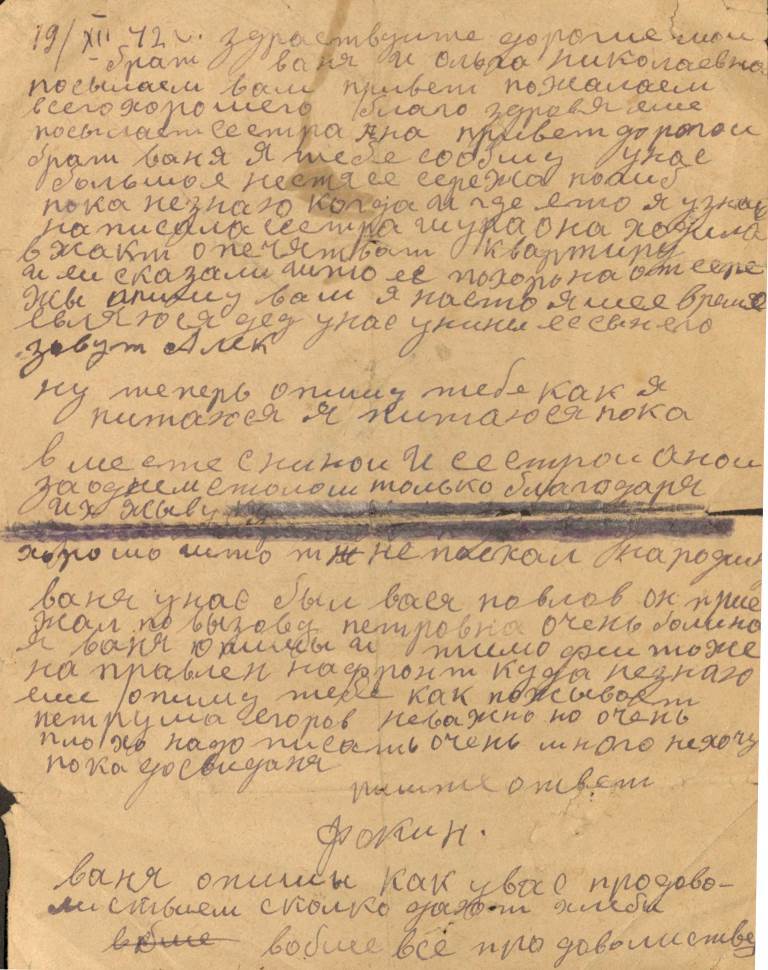 19/XII 42 г. здраствуите дорогие мои
брат ваня и ольга николаевна
посылаем вам привет пожалаем
всего хорошего благо здровя еше
посылает сестра Ана привет дорогои
брат ваня я тебе сообшу унас
большоя нестясе сережа погиб
пока незнаю когда и где ето я узнал
написала сестра шура она ходила
в жакт опечятват квартиру
и еи сказали што ес похорьна от сере
жы опишу вам я настояшее время
евляюся дед унас унины ессын его
зовут Алек
ну теперь опишу тебе как я
питаюся я питаюся пока
вместе с нинои и сестрои анои
заоднем столом только благодаря
их жыву
хорошо што ты непоехал народин
ваня унас был вася повлов он прие
жал по вызову петровна очень болина
я ваня опишы и тимофеи тоже
на правлен нафронт куда незнаю
еше опишу тебе как пожывает
петруша егоров неважно но очень
плохо надо писать очень много нехочу
пока досвиданя
пишите ответ
Фокин.
ваня опишы как увас продово-
листвием сколко дают хлеба
вобше вобше всё продоволистве